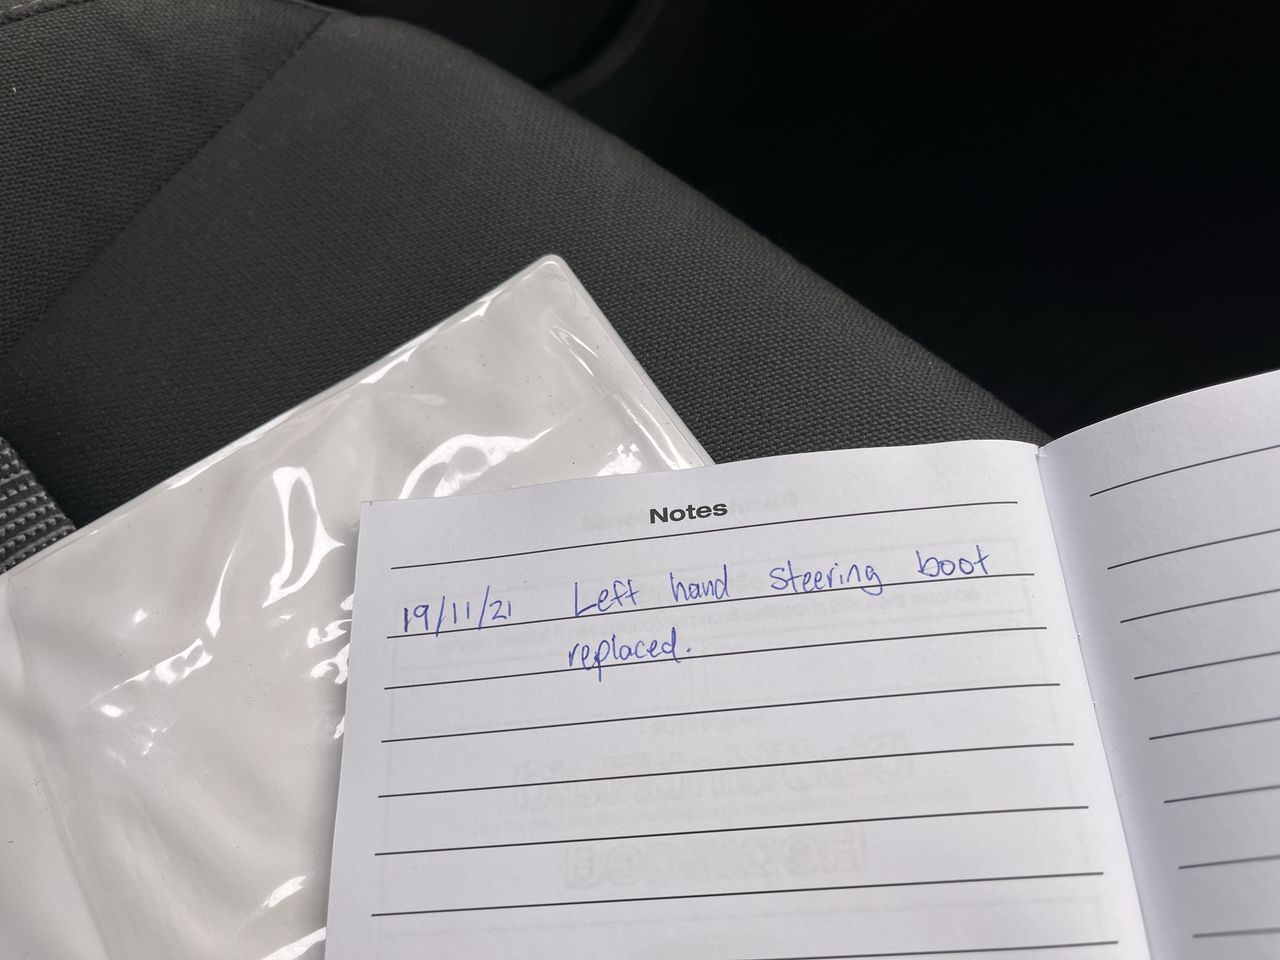 Notes
19/11/21 Left hand steering boot
replaced.